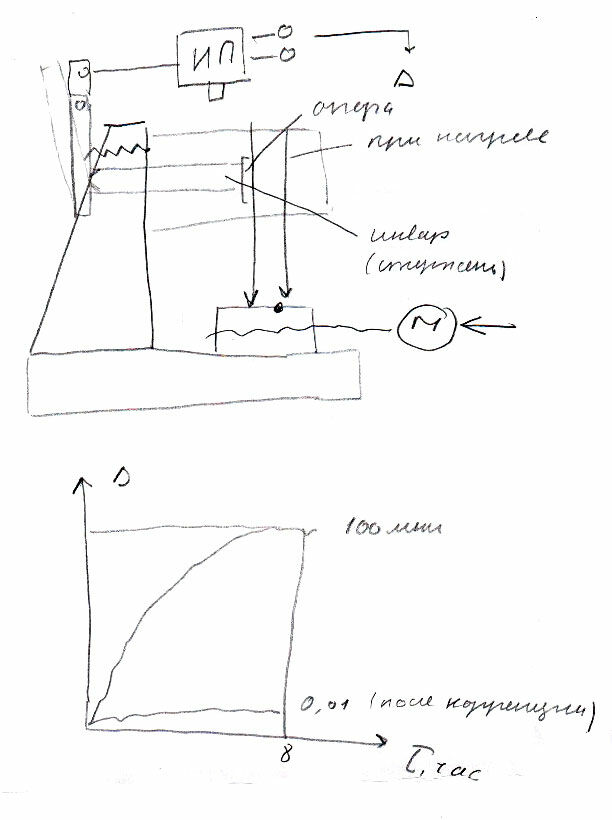 ИП
Δ
опора
при нагреве
инвар
(стержень)
М
Δ
100 мкм
0,01 (после коррекции)
8
T, час